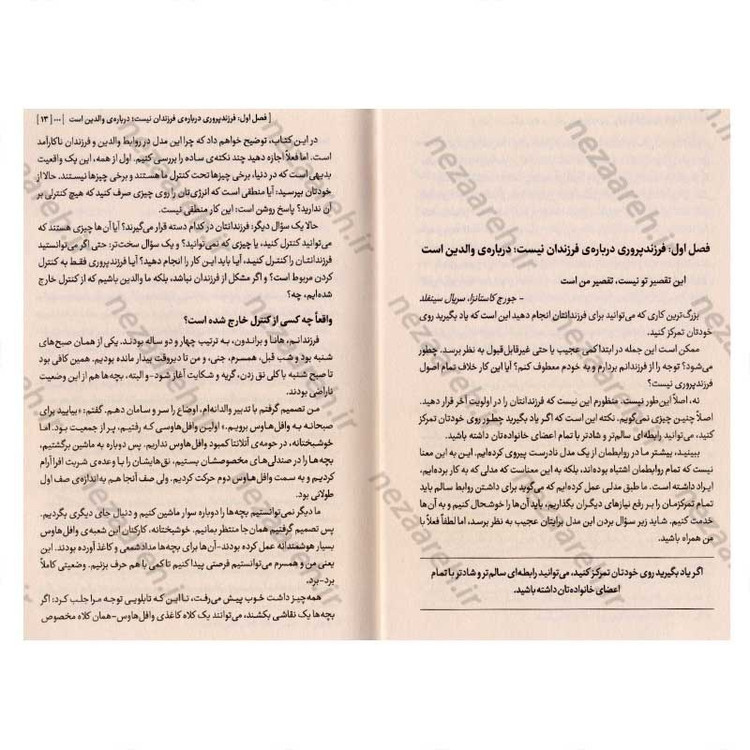 فصل اول: فرزندپروری درباره‌ی فرزندان نیست؛ درباره‌ی والدین است
این تقصیر تو نیست، تقصیر من است
- جورج کاستانزا، سریال سینفلد
بزرگ‌ترین کاری که می‌توانید برای فرزندانتان انجام دهید این است که یاد بگیرید روی
خودتان تمرکز کنید.
ممکن است این جمله در ابتدا کمی عجیب یا حتی غیرقابل‌قبول به نظر برسد. چطور
می‌شود؟ توجه را از فرزندانم بردارم و به خودم معطوف کنم؟ آیا این کار خلاف تمام اصول
فرزندپروری نیست؟
نه، اصلاً این‌طور نیست. منظورم این نیست که فرزندانتان را در اولویت آخر قرار دهید.
اصلاً چنین چیزی نمی‌گویم. نکته این است که اگر یاد بگیرید چطور روی خودتان تمرکز
کنید، می‌توانید رابطه‌ای سالم‌تر و شادتر با تمام اعضای خانواده‌تان داشته باشید.
ببینید، بیشتر ما در روابطمان از یک مدل نادرست پیروی کرده‌ایم. این به این معنا
نیست که تمام روابطمان اشتباه بوده‌اند، بلکه به این معناست که مدلی که به کار برده‌ایم،
ایراد داشته است. ما طبق مدلی عمل کرده‌ایم که می‌گوید برای داشتن روابط سالم باید
تمام تمرکزمان را بر رفع نیازهای دیگران بگذاریم، باید آن‌ها را خوشحال کنیم و به آن‌ها
خدمت کنیم. شاید زیر سؤال بردن این مدل برایتان عجیب به نظر برسد، اما لطفاً فعلاً با
من همراه باشید.
اگر یاد بگیرید روی خودتان تمرکز کنید، می‌توانید رابطه‌ای سالم‌تر و شادتر با تمام
اعضای خانواده‌تان داشته باشید.
[ فصل اول: فرزندپروری درباره‌ی فرزندان نیست؛ درباره‌ی والدین است ] ••• [ ۱۳ ]
در این کتاب، توضیح خواهم داد که چرا این مدل در روابط والدین و فرزندان ناکارآمد
است. اما فعلاً اجازه دهید چند نکته‌ی ساده را بررسی کنیم. اول از همه، این یک واقعیت
بدیهی است که در دنیا، برخی چیزها تحت کنترل ما هستند و برخی چیزها نیستند. حالا از
خودتان بپرسید: آیا منطقی است که انرژی‌تان را روی چیزی صرف کنید که هیچ کنترلی بر
آن ندارید؟ پاسخ روشن است: این کار منطقی نیست.
حالا یک سؤال دیگر: فرزندانتان در کدام دسته قرار می‌گیرند؟ آیا آن‌ها چیزی هستند که
می‌توانید کنترل کنید، یا چیزی که نمی‌توانید؟ و یک سؤال سخت‌تر: حتی اگر می‌توانستید
فرزندانتان را کنترل کنید، آیا باید این کار را انجام دهید؟ آیا فرزندپروری فقط به کنترل
کردن مربوط است؟ و اگر مشکل از فرزندان نباشد، بلکه ما والدین باشیم که از کنترل خارج
شده‌ایم، چه؟
واقعاً چه کسی از کنترل خارج شده است؟
فرزندانم، هانا و براندون، به ترتیب چهار و دو ساله بودند. یکی از همان صبح‌های
شنبه بود و شب قبل، همسرم، جنی، و من تا دیروقت بیدار مانده بودیم. همین کافی بود
تا صبح شنبه با کلی نق زدن، گریه و شکایت آغاز شود-و البته، بچه‌ها هم از این وضعیت
ناراضی بودند.
من تصمیم گرفتم با تدبیر والدانه‌ام، اوضاع را سر و سامان دهم. گفتم: «بیایید برای
صبحانه به وافل‌هاوس برویم». اولین وافل‌هاوسی که رفتیم، پر از جمعیت بود. اما
خوشبختانه، در حومه‌ی آتلانتا کمبود وافل‌هاوس نداریم. پس دوباره به ماشین برگشتیم،
بچه‌ها را در صندلی‌های مخصوصشان بستیم، نق‌هایشان را با وعده‌ی شربت افرا آرام
کردیم و به سمت وافل‌هاوس دوم حرکت کردیم. ولی صف آنجا هم به اندازه‌ی صف اول
طولانی بود.
ما دیگر نمی‌توانستیم بچه‌ها را دوباره سوار ماشین کنیم و دنبال جای دیگری بگردیم.
پس تصمیم گرفتیم همان‌جا منتظر بمانیم. خوشبختانه، کارکنان این شعبه‌ی وافل‌هاوس
بسیار هوشمندانه عمل کرده بودند-آن‌ها برای بچه‌ها مدادشمعی و کاغذ آورده بودند. این
یعنی من و همسرم می‌توانستیم فرصتی پیدا کنیم تا کمی با هم حرف بزنیم. وضعیتی کاملاً
برد-برد.
همه‌چیز داشت خوب پیش می‌رفت، تا این‌که تابلویی توجه مرا جلب کرد: اگر
بچه‌ها یک نقاشی بکشند، می‌توانند یک کلاه کاغذی وافل‌هاوس-همان کلاه مخصوص
nezaareh.ir